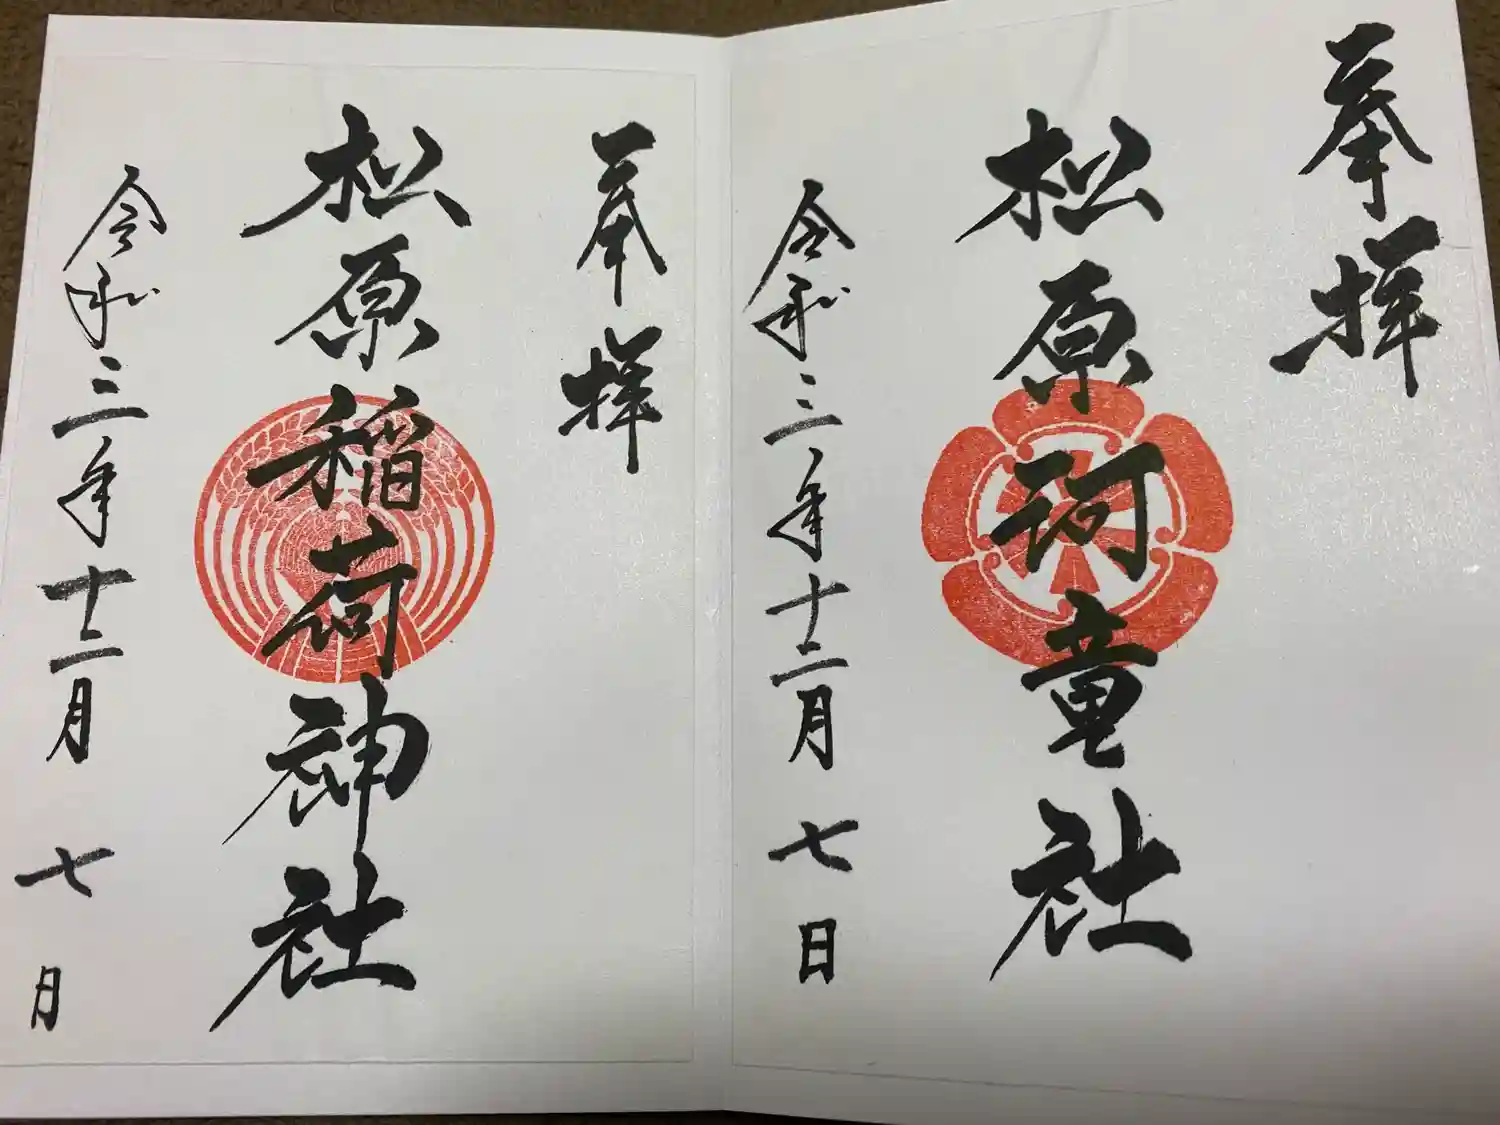 奉拝
松原河童社
令和三年十二月七日
奉拝
松原稲荷神社
令和三年十二月七日